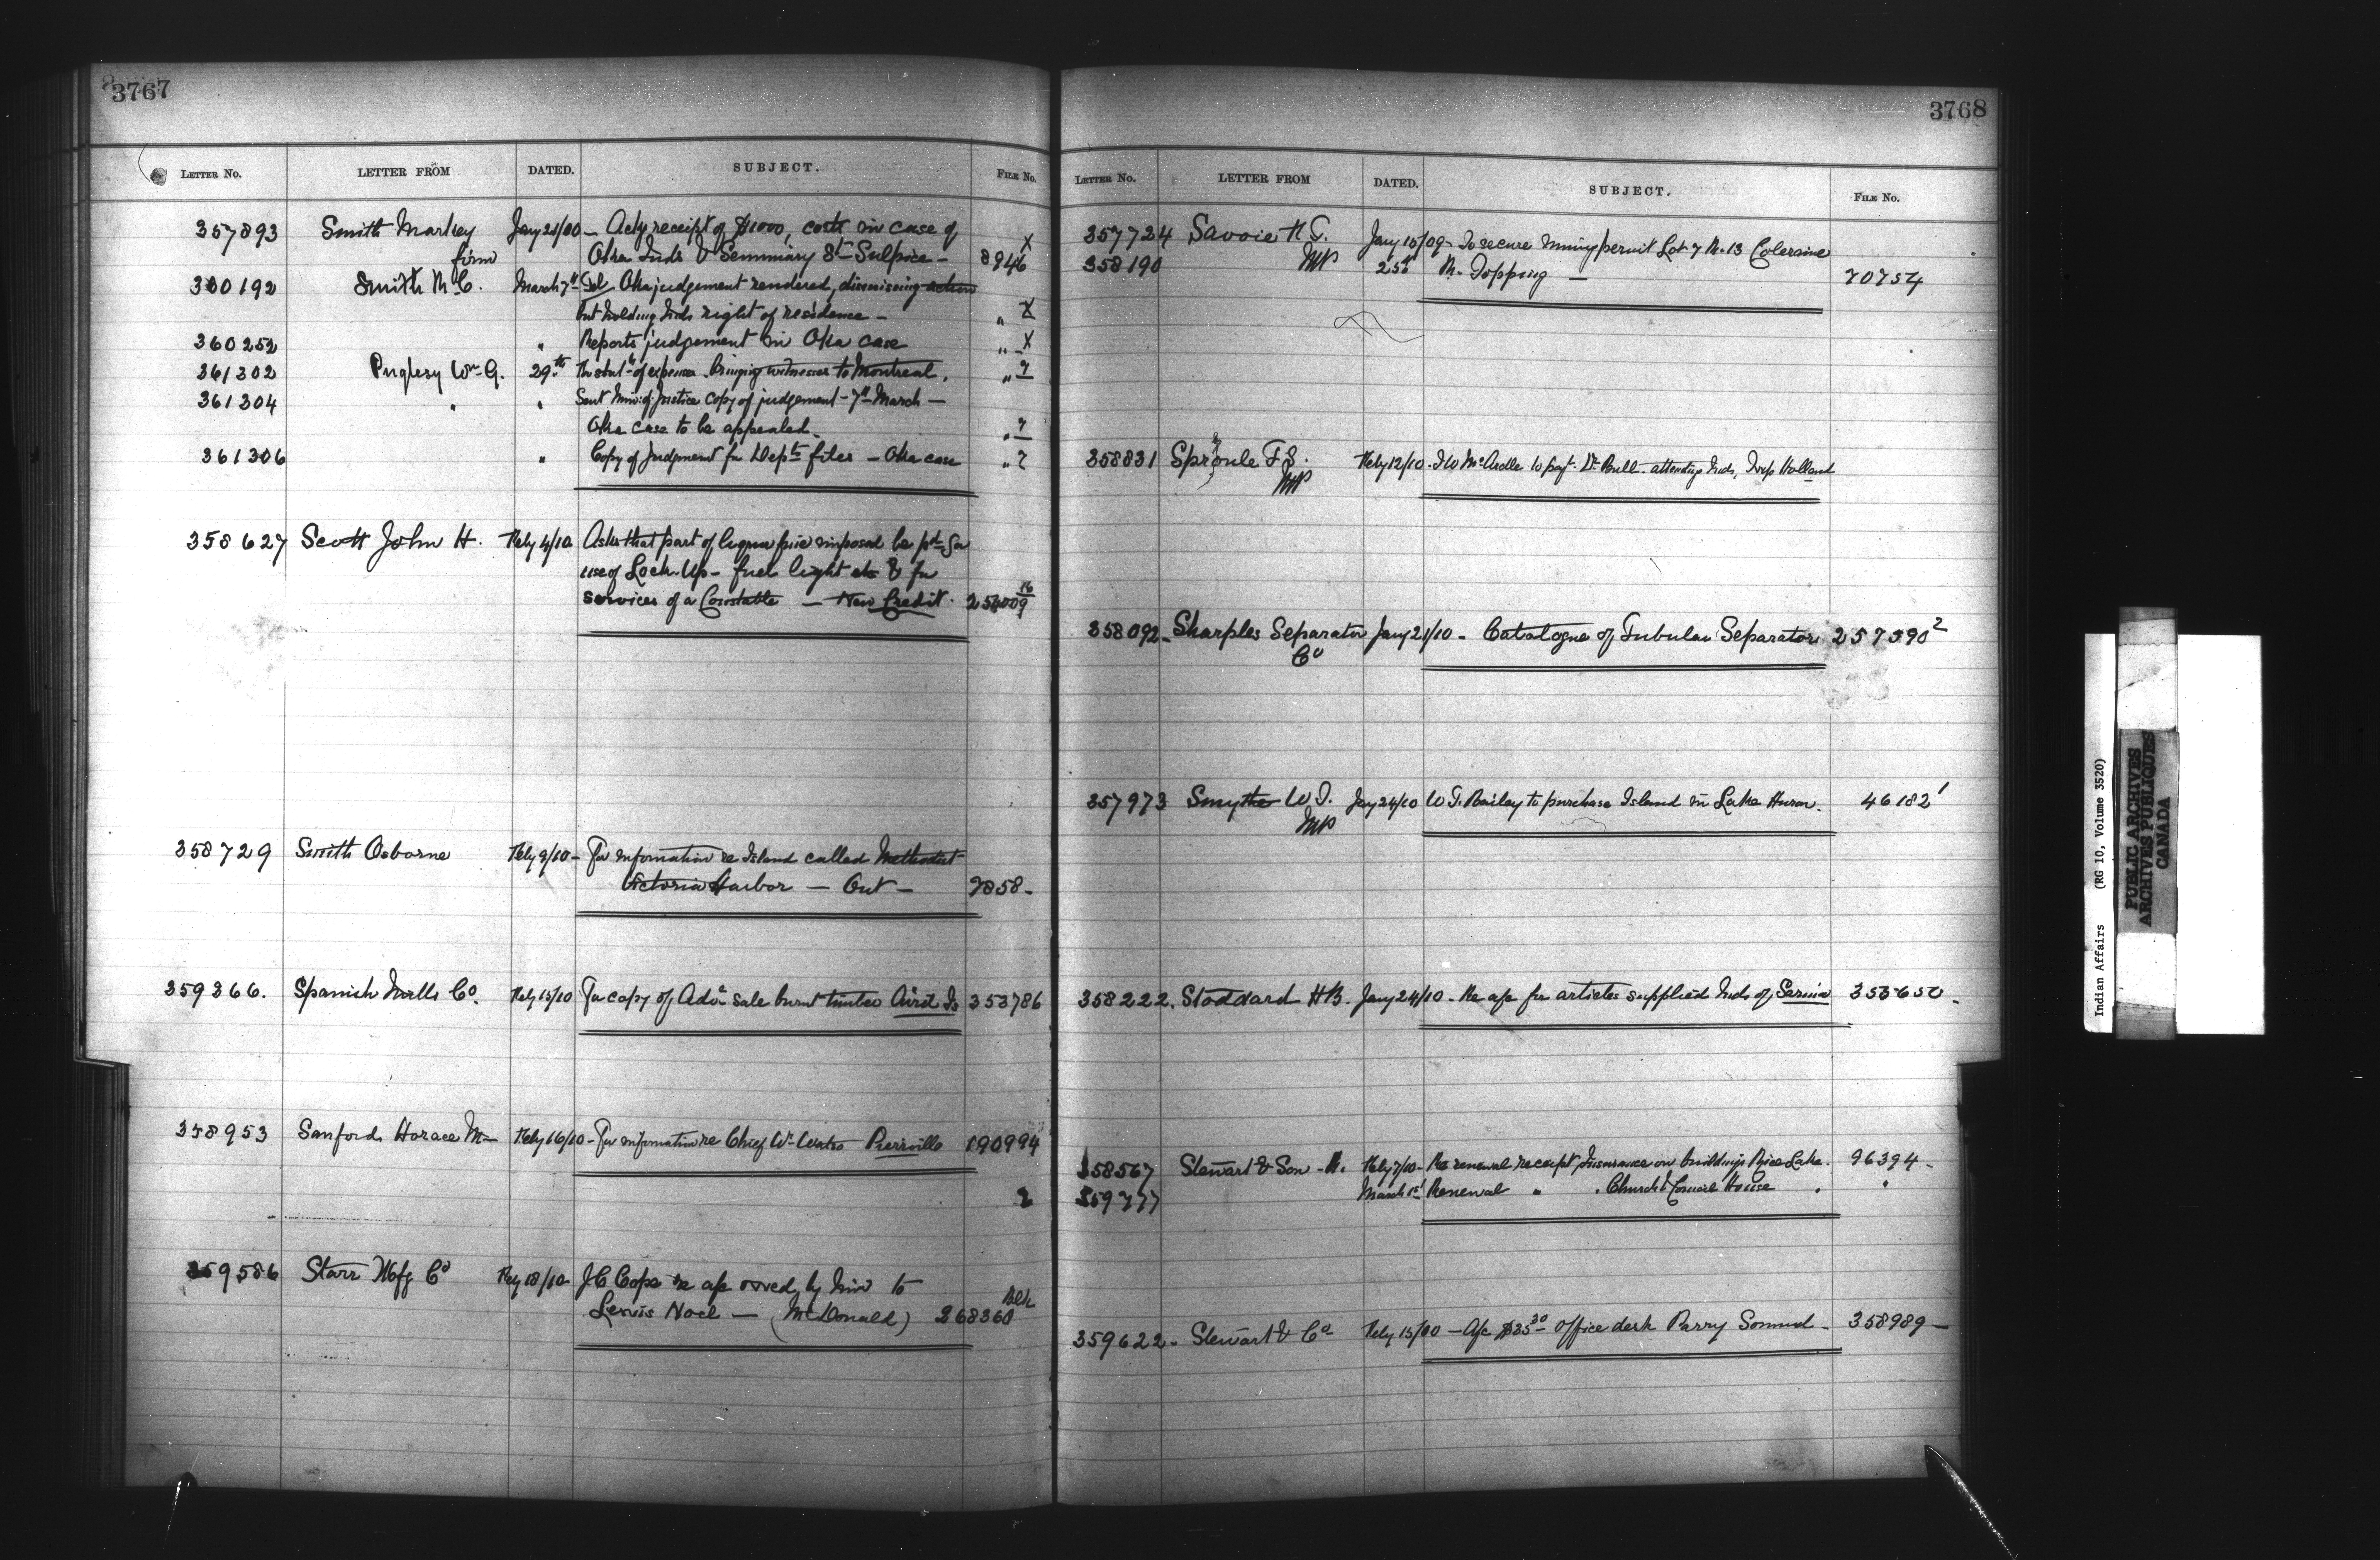 3767
LETTER No. LETTER FROM DATED. SUBJECT. FILE No.
357893 Smith Markey Jany 21/10 – Ackg receipt of $1000, costs in case of
firm Oka Inds V Seminary St Sulpice – 8946 X
360192 Smith R.C. March 7th Tel Oka judgement rendered, dismissing action
but holding Inds right of residence – " X
360252 " Reports judgement in Oka case " X
361302 Puglesy Wm G. 29th of expenses bringing witnesses to Montreal. " ?
361304 " " Sent Min: of Justice copy of judgement – 7th March –
Oka case to be appealed – " ?
361306 " Copy of Judgment for Depts files – Oka case " ?
358627 Scott John H. Feby 4/10 Asks that part of liquor fine imposed be pd for
use of Lock-Up – fuel light etc & for
services of a Constable – New Credit. 254009 16
358729 Smith Osborne Feby 9/10 – For information re Island called Methodist
Victoria Harbor – Ont – 7858 –
359366. Spanish Mills Co. Feby 15/10 For copy of Advt sale burnt timber Aird Is 353786
358953 Sanford Horace M – Feby 16/10 – For information re Chief Wm Watso Pierrville 190994
?
359586 Starr Mfg Co Feby 18/10 J C Cope re a/c owed by him to
Lewis Noel – (McDonald) 268360 Blk
3768
LETTER No. LETTER FROM DATED. SUBJECT. FILE No.
357724 Savoie F. T. Jany 15/09 – To secure mining permit Lot 7 R. 13 Coleraine
358190 MP 25th R. Topping – 70754
358831 Sproule T S. Feby 12/10. McArdle to pay Dr Bull attending Inds, Twp Holland
MP
358092 – Sharples Separator Jany 21/10 – Catalogue of Tubular Separator 257590 2
Co
357973 Smythe W.T. Jany 24/10 W.T. Bailey to purchase Island in Lake Huron. 46182 1
MP
358222. Stoddard H B. Jany 24/10 – Re a/c for articles supplied Inds of Sarnia 353650 –
358567 Stewart & Son – R. Feby 7/10 – Re renewal receipt Insurance on buildings Rice Lake. 96394 –
359777 March 1st Renewal " " Church & Council House " "
359622 – Stewart & Co Feby 15/10 – A/c $35 30 office desk Parry Sound – 358989 –
Indian Affairs (RG 10, Volume 3520)
PUBLIC ARCHIVES
ARCHIVES PUBLIQUES
CANADA